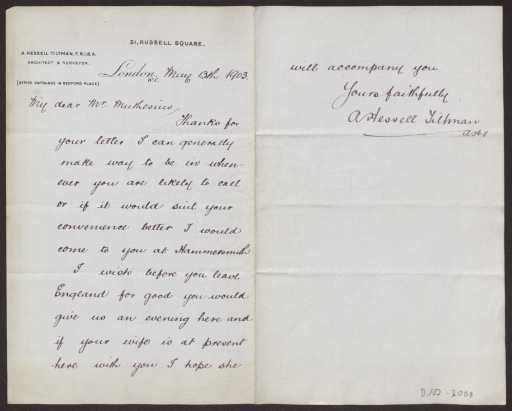 21, RUSSELL SQUARE.
A. HESSELL TILTMAN, F.R.I.B.A.
ARCHITECT & SURVEYOR.
(OFFICE ENTRANCE IN BEDFORD PLACE)
London, W.C. May 13th 1903.
My dear Mr. Muthesius,
Thanks for
your letter I can generally
make way to be in when-
ever you are likely to call
or if it would suit your
convenience better I would
come to you at Hammersmith
I wish before you leave
England for good you would
give us an evening here and
if your wife is at present
here with you I hope she
will accompany you
Yours faithfully
A Hessell Tiltman